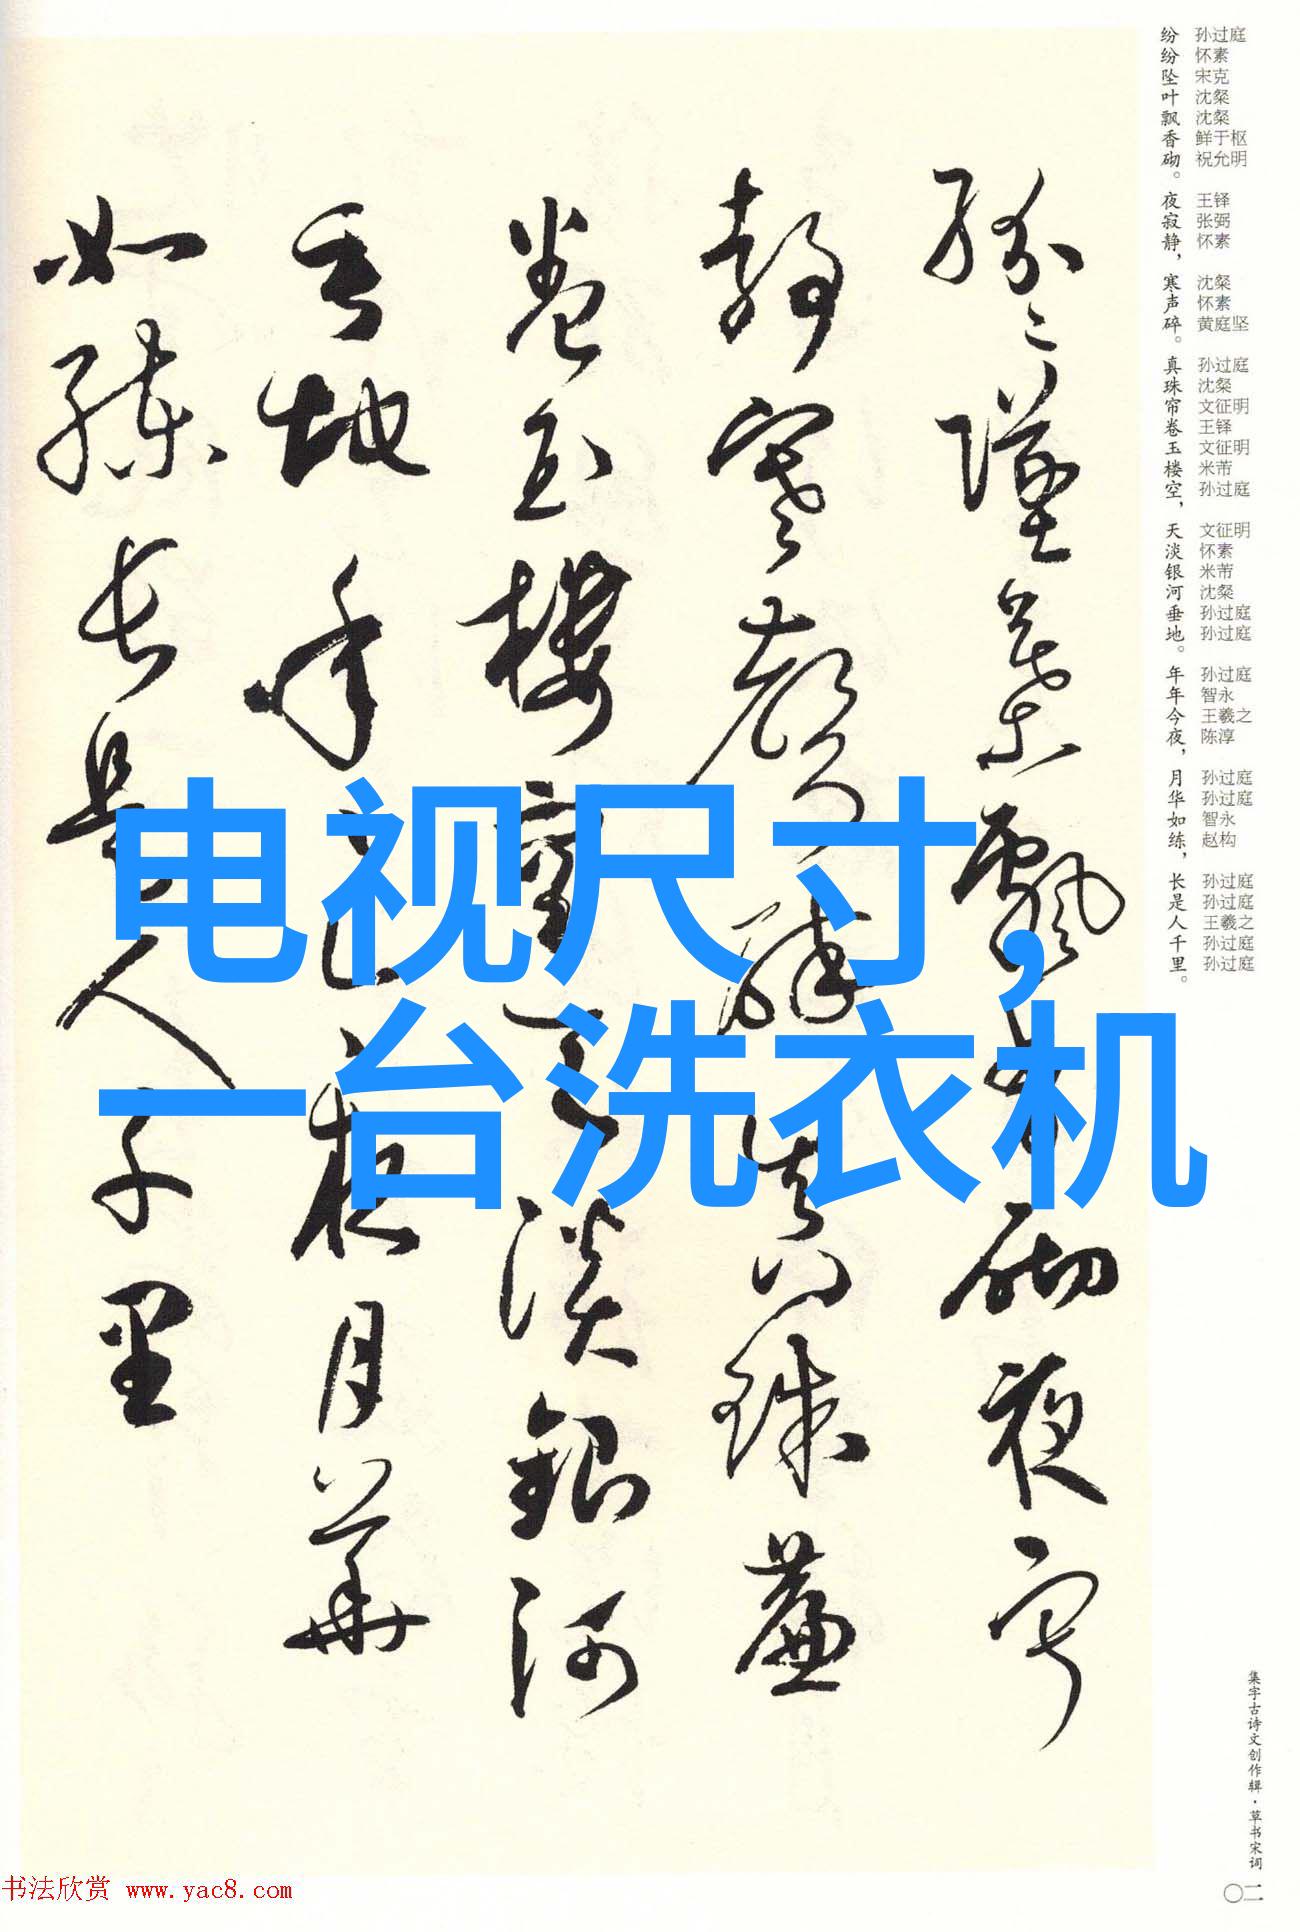 纷纷坠叶飘香砌。夜寂静，寒声碎。真珠帘卷玉楼空，天淡银河垂地。年年今夜，月华如练，长是人千里。
孙过庭
怀素
宋克
沈粲
沈粲
鲜于枢
祝允明
王铎
张弼
怀素
沈粲
怀素
黄庭坚
孙过庭
沈粲
文征明
王铎
文征明
米芾
孙过庭
文征明
怀素
米芾
沈粲
孙过庭
孙过庭
孙过庭
智永
王羲之
陈淳
孙过庭
孙过庭
智永
赵构
孙过庭
孙过庭
王羲之
孙过庭
孙过庭
纷〻坠叶飘香砌夜寂
静寒声碎真珠帘
卷玉楼空天淡银河
垂地年年今夜月华
如练长是人千里
电视尺寸，
一台洗衣机
集字古诗文创作辑·草书宋词
〇二
书法欣赏 www.yac8.com